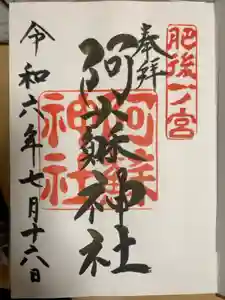 肥後一ノ宮
奉拝
阿蘇神社
阿蘇神社
令和六年七月十六日